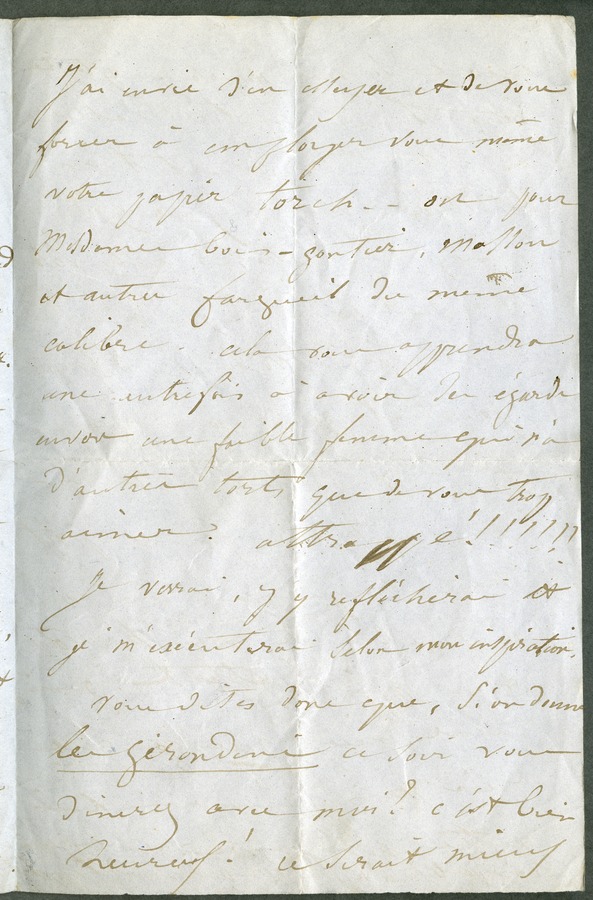 J'ai envie d'en essayer et de vous
forcer à employer vous même
votre papier torch - - on pour
Mesdames bois-gontier, 
et autres fargueil du même
calibre. cela vous apprendra
une autrefois à avoir des égards
envers une faible femme qui n'a
d'autres torts que de vous trop
aimer. attrapé!!!!!!!
Je verrai, j'y réfléchirai et
je m'exécuterai selon mon inspiration.
vous dites donc que, si on donne
les girondins ce soir vous
dinerez avec moi? c'est bien
heureux! ce serait mieux